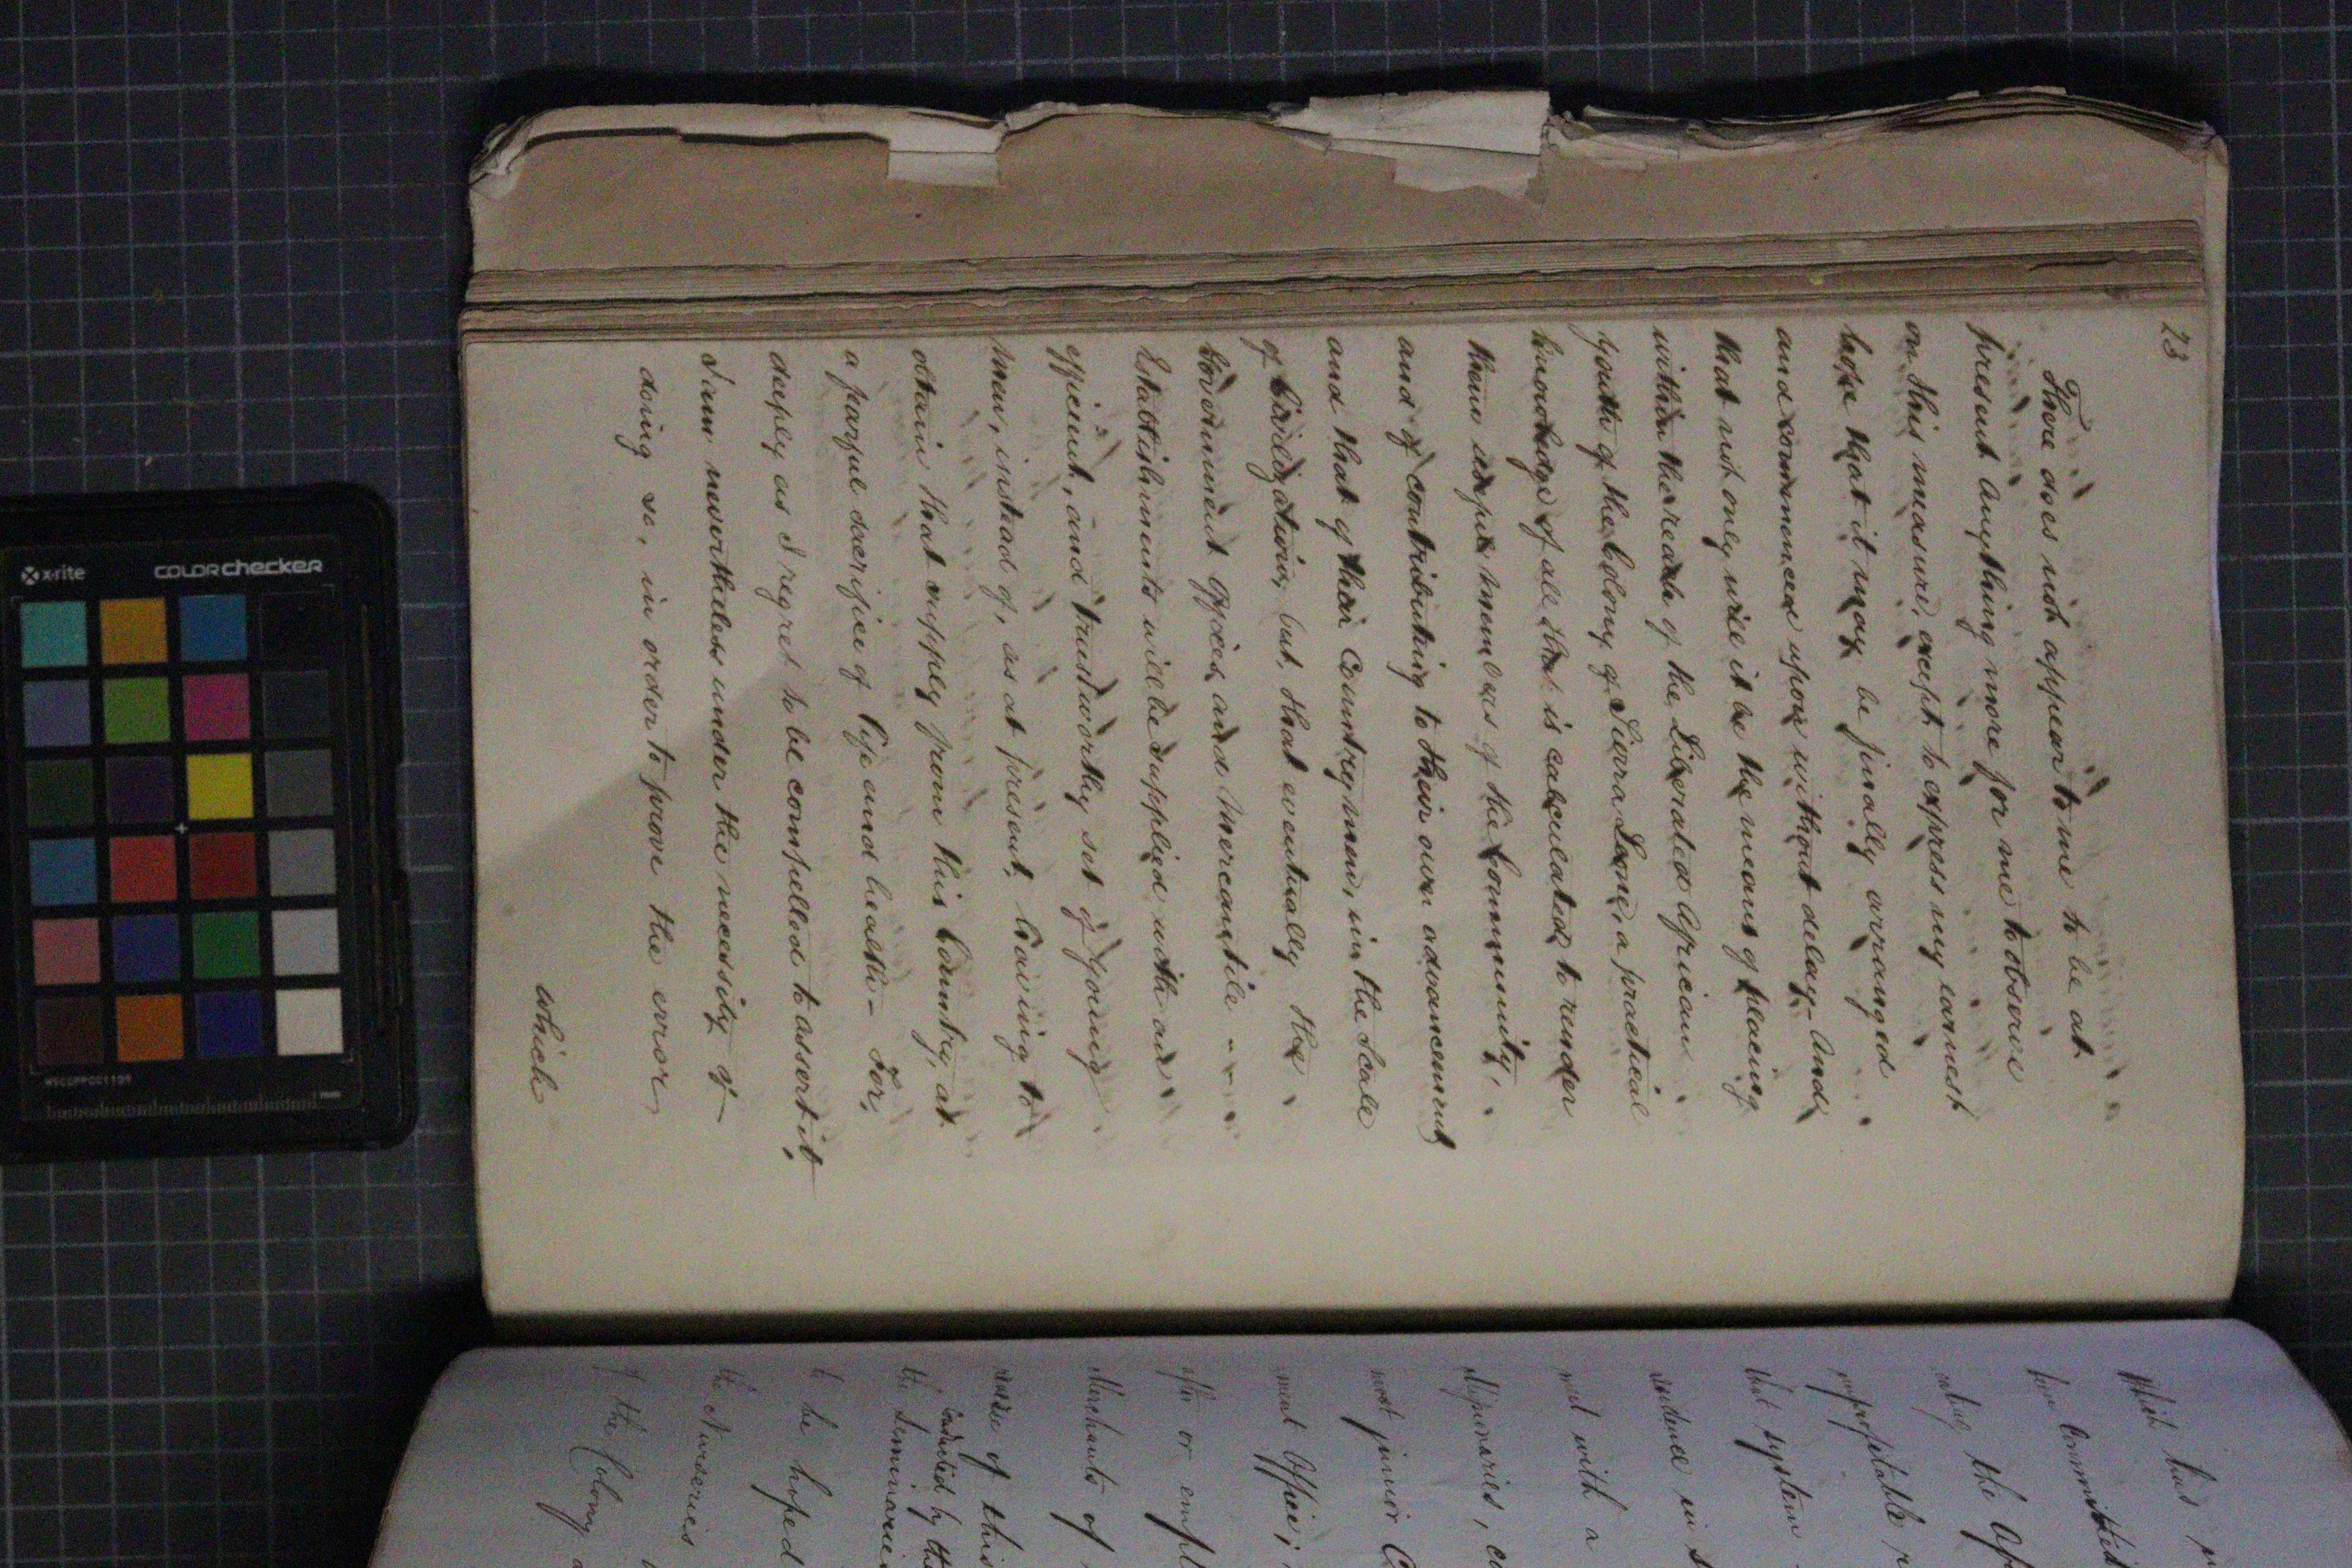 23
There does not appear to me to be at
present anything more for me to observe
on this measure, except to express my earnest
hope that it may be finally arranged
and commenced upon without delay - And
that not only will it be the means of placing
within the reach of the Liberated African
youth of the Colony of Sierra Leone, a practical
knowledge of all that is calculated to render
them useful members of the Community,
and of contributing to their own advancement
and that of their Countrymen, in the scale
of Civilization, but, that eventually the
Government Offices and Mercantile --
Establishments will be supplied with an
efficient, and trustworthy set of young
men, instead of, as at present, having to
obtain that supply from this Country, at
a frightful sacrifice of life and health - For,
deeply as I regret to be compelled to assert it,
I am nevertheless under the necessity of
doing so, in order to prove the error
which
Which has
from Committ
the
respectable
that system
residence in
met with a
Missionaries, co
most junior C
ment Office;
after or empl
Merchants of
of this
conducted by the
the Seminarie
to be hoped
the Nurseries
of the Colony a
x-rite
colorchecker
mm